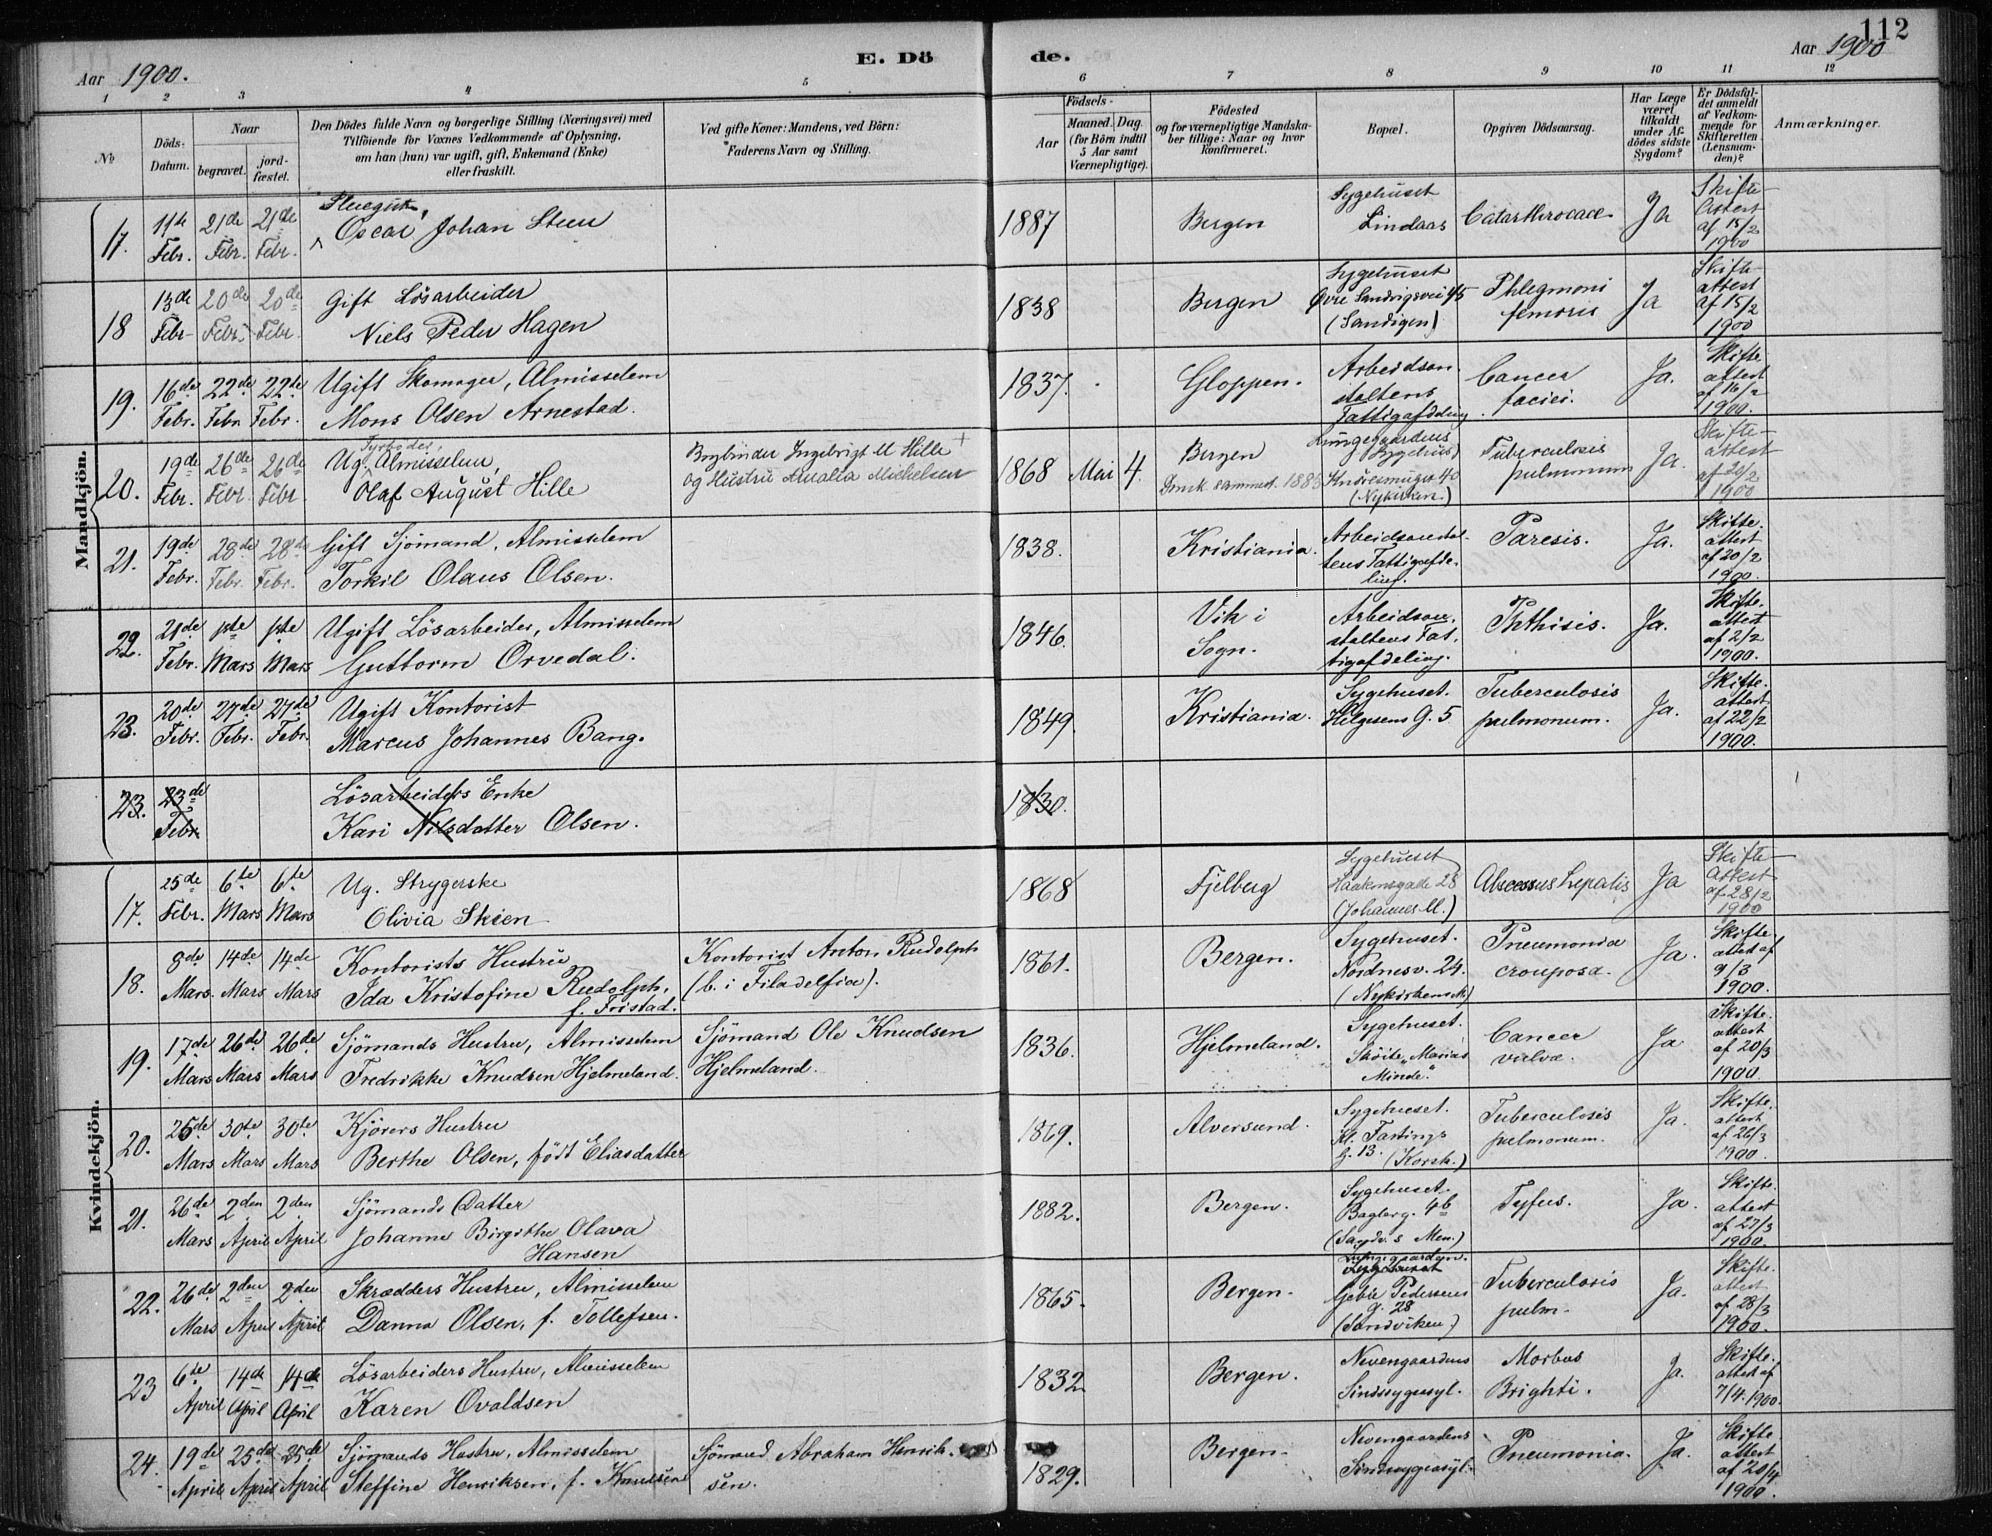 112
Aar 1900.
E. Dö
de.
Aar 1900
1 2 3 4 5 6 7 8 9 10 11 12
№
Döds-
Datum.
Naar
begravet.
jord-
fæstet.
Den Dödes fulde Navn og borgerlige Stilling (Næringsvei) med
Tilföiende for Voxnes Vedkommende af Oplysning,
om han (hun) var ugift, gift, Enkemand (Enke)
eller fraskilt.
Ved gifte Koner: Mandens, ved Börn:
Faderens Navn og Stilling.
Födsels-
Aar
Maaned. Dag.
(for Börn indtil
5 Aar samt
Værnepligtige).
Födested
og for værnepligtige Mandska-
ber tillige: Naar og hvor
konfirmeret.
Bopæl.
Opgiven Dödsaarsag.
Har Læge
været
tilkaldt
under Af-
dödes sidste
Sygdom?
Er Dödsfal-
det anmeldt
af Vedkom-
mende for
Skifteretten
(Lensman-
den)?
Anmærkninger.
Mandkjön.
17. 11te Febr. 21de Febr. 21de Febr.
Oscar Johan Steen
1887 Bergen
Sygehuset
Lindaas
Catarthrocace Ja
Skifte-
attest
af 15/2
1900
18 13de Febr 20de Febr. 20de Febr.
Gift Lösarbeider
Niels Peder Hagen
1838 Bergen
Sygehuset
Øvre Sandvigsvei 45
(Sandvigen)
Phlegmoni
femoris
Ja
Skifte-
attest
af 15/2
1900
19. 16de Febr. 22de Febr 22de Febr.
Ugift Skomager, Almisselem
Mons Olsen Arnestad.
1837. Gloppen.
Arbeidsan
staltens
Fattigafdeling
Cancer
faciei.
Ja.
Skifte.
attest
af 16/2
1900.
20. 19de Febr. 26de Febr. 26de Febr
Fyrböder,
Ug. Almisselem,
Olaf August Hille
Bogbinder Ingebrigt M Hille +
og Hustru Amalia Michelsen
1868 Mai 4.
Bergen
Lungegaardens
Sygehus)
(Nykirken.)
Tuberculosis
pulmonum
Ja.
Skifte-
attest
af 20/2
1900
21. 19de Febr. 28de Febr. 28de Febr.
Gift Sjömand, Almisselem
Torkil Olaus Olsen.
1838. Kristiania.
Arbeidsanstal
tens Fattigafde-
ling.
Paresis. Ja.
Skifte.
attest
af 20/2
1900
22. 21de Febr. 1ste Mars 1ste Mars
Ugift Lösarbeider, Almisselem
Guttorm Orvedal.
1846. Vik i
Sogn.
Arbeidsan.
staltens Fat.
tigafdeling.
Phthisis. Ja.
Skifte.
attest
af 2/2
1900.
23. 20de Febr. 27de Febr. 27de Febr.
Ugift Kontorist
Marcus Johannes Bang.
1849. Kristiania.
Sygehuset.
Helgesens G. 5
Tuberculosis
pulmonum.
Ja.
Skifte.
attest
af 22/2
1900.
23. 23de Febr.
Lösarbeiders Enke
Kari Nilsdatter Olsen.
1830.
Kvindekjön.
17. 25de Febr. 6te Mars 6te Mars
Ug. Strygerske
Olivia Skien
1868 Fjelberg
Sygehuset
Haakonsgade 28
(Johannes M.)
Abscessus hepatis Ja
Skifte-
attest
af 28/2
1900
18. 8de Mars. 14de Mars 14de Mars
Kontorists Hustru
Ida Kristofine Rudolph,
f. Fristad.
Kontorist Anton Rudolph
(b. i Filadelfia).
1861. Bergen.
Sygehuset.
Nordnesv. 24.
(Nykirkens M.)
Pneumonia
crouposa.
Ja.
Skifte.
attest af
9/3
1900.
19. 17de Mars 26de Mars 26de Mars
Sjömands Hustru, Almisselem
Fredrikke Knudsen Hjelmeland.
Sjömand Ole Knudsen
Hjelmeland.
1836. Hjelmeland.
Sygehuset.
Sköite „Marias
Minde“.
Cancer
vulvæ.
Ja
Skifte.
attest
af 20/3
1900.
20. 25de Mars 30te Mars 30te Mars
Kjörers Hustru
Berthe Olsen, födt Eliasdatter
1869. Alversund.
Sygehuset.
Kl. Fastings
G. 13. (Korsk.)
Tuberculosis
pulmonum.
Ja.
Skifte.
attest
af 26/3
1900.
21. 26de Mars 2den April 2den April
Sjömands Datter
Johanne Birgitthe Olava
Hansen
1882. Bergen.
Sygehuset.
Baglerg. 4b
Tyfus. Ja.
Skifte.
attest
af 27/3
1900.
22. 26de Mars 2den April 2den April
Skrædders Hustru, Almisselem
Danna Olsen, f. Tollefsen.
1865. Bergen.
Lungegaarden.
Sygehuset
Gable Pedersens
G. 28
(Sandviken.)
Tuberculosis
pulm.
Ja.
Skifte.
attest
af 28/3
1900.
23 6te April 14de April 14de April
Lösarbeiders Hustru, Almisselem
Karen Ovaldsen
1832 Bergen.
Nevengaardens
Sindssygeasyl.
Morbus
Brighti.
Ja.
Skifte.
attest af
7/4. 1900.
24. 19de April 25de April 25de April
Sjömands Hustru, Almisselem
Steffine Henriksen, f. Knudsen
Sjömand Abraham Henrik-
sen.
1829. Bergen.
Nevengaardens
Sindssygeasyl.
Pneumonia. Ja.
Skifte.
attest
af 20/4
1900.